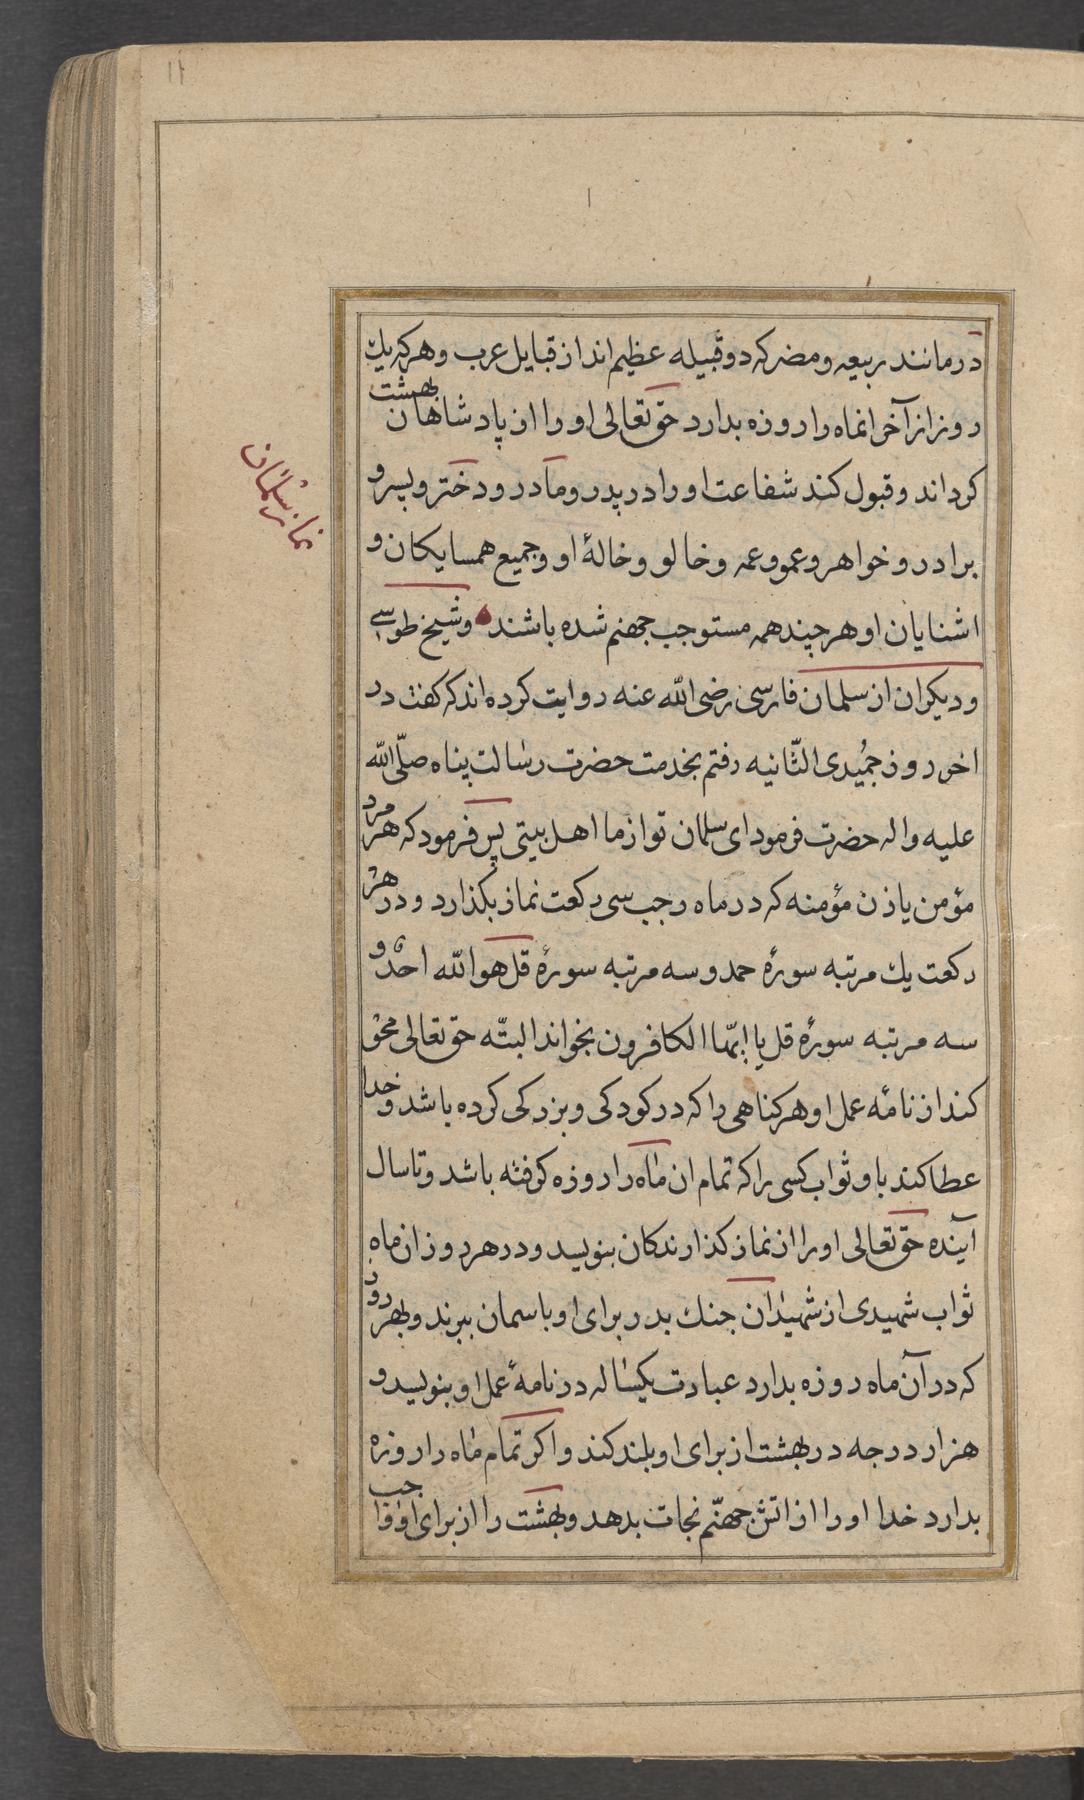 ١٢
١
درمانند ربیعه و مضر که دو قبیله عظیم اند از قبایل عرب و هر که یك
روز از آخر انماه را روزه بدارد حق تعالی او را از پادشاهان بهشت
کرداند و قبول کند شفاعت او را در پدر و مادر و دختر و پسر و
برادر و خواهر و عمو و عمه و خالو و خالهٔ او و جمیع همسایکان و
اشنایان او هر چند همه مستوجب جهنم شده باشند و شیخ طوسی
و دیکران از سلمان فارسی رضی الله عنه روایت کرده اند که کفت در
اخر روز جمیدی الثّانیه رفتم بخدمت حضرت رسالت پناه صلّی الله
علیه واله حضرت فرمود ای سلمان تو از ما اهل بیتی پس فرمود که هر مرد
مؤمن یا زن مؤمنه که در ماه رجب سی رکعت نماز بکذارد و در هر
رکعت یك مرتبه سورهٔ حمد و سه مرتبه سورهٔ قل هو الله احدٌ و
سه مرتبه سورهٔ قل یا ایّها الکافرون بخواند البتّه حق تعالی محو
کند از نامهٔ عمل او هر کناهی را که در کودکی و بزرکی کرده باشد و خدا
عطا کند باو ثواب کسی را که تمام ان ماه را روزه کرفته باشد و تا سال
آینده حق تعالی او را از نماز کذارندکان بنویسد و در هر روز ان ماه
ثواب شهیدی از شهیدان جنك بدر برای او باسمان ببرند و بهر روز
که در آن ماه روزه بدارد عبادت یکساله در نامهٔ عمل او بنویسد و
هزار درجه در بهشت از برای او بلند کند و اکر تمام ماه را روزه
بدارد خدا او را از اتش جهنّم نجات بدهد و بهشت را از برای او واجب
نماز سلمان